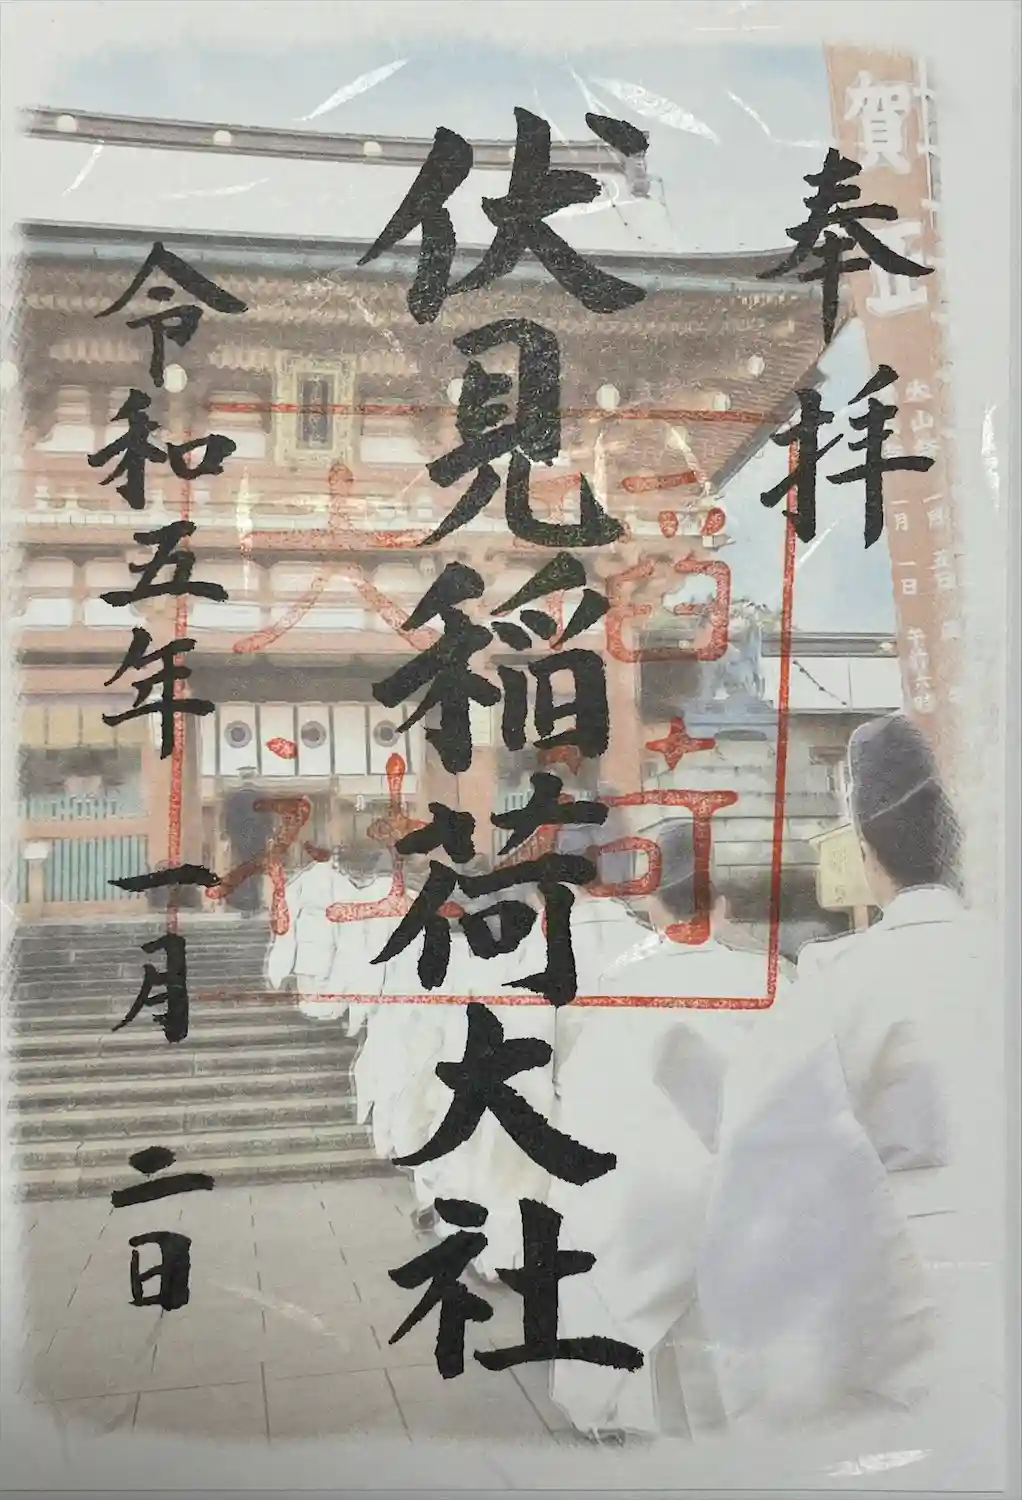 奉拝
伏見稲荷大社
令和五年一月二日
賀正